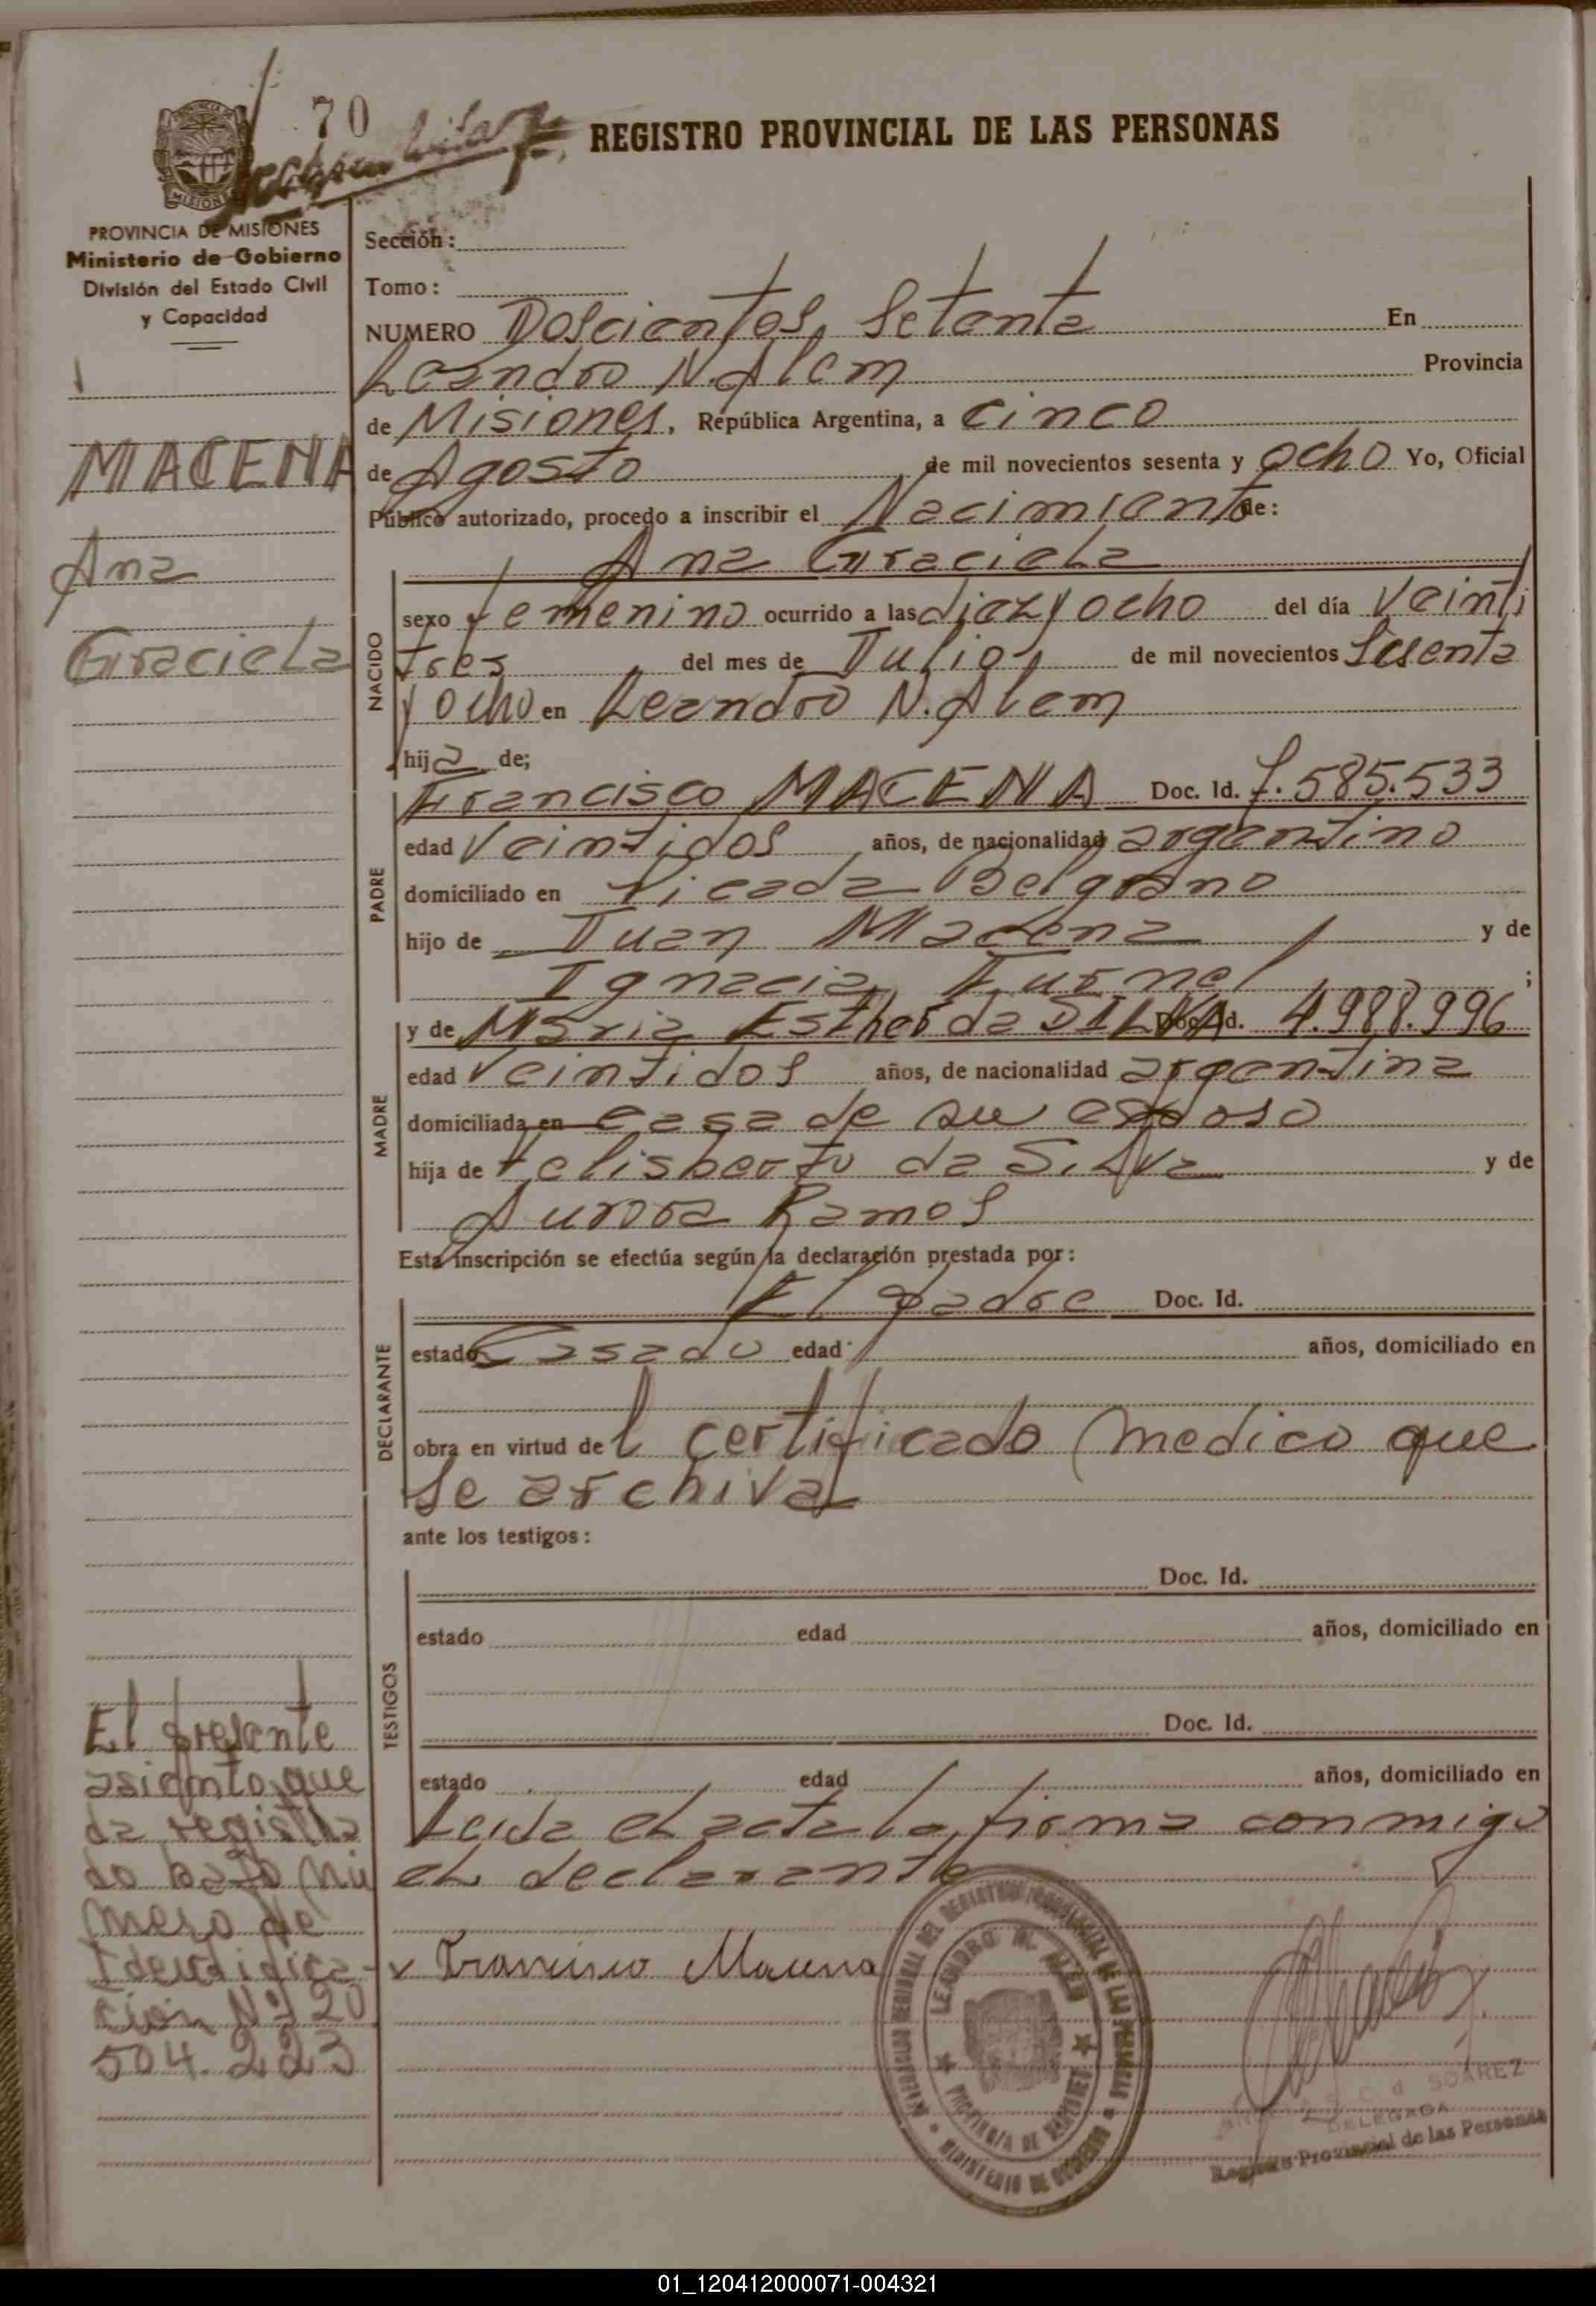 70
REGISTRO PROVINCIAL DE LAS PERSONAS
PROVINCIA DE MISIONES
Ministerio de Gobierno
División del Estado Civil
y Capacidad
MACENA
Ana
Graciela
Sección:
Tomo:
NUMERO Doscientos Setenta En
Leandro N. Alem Provincia
de Misiones, República Argentina, a Cinco
de Agosto de mil novecientos sesenta y ocho Yo, Oficial
Público autorizado, procedo a inscribir el Nacimiento de:
Ana Graciela
NACIDO
sexo femenino ocurrido a las diez y ocho del día Veinti
tres del mes de Julio de mil novecientos Sesenta
y ocho en Leandro N. Alem
hija de;
PADRE
Francisco MACENA Doc. Id. 7.585.533
edad Veintidos años, de nacionalidad argentino
domiciliado en Picada Belgrano
hijo de Juan Macena y de
Ignacia ;
MADRE
y de Maria Esther da SILVA Doc. Id. 4.988.996
edad Veintidos años, de nacionalidad argentina
domiciliada en casa de su esposo
hija de Felisberto da Silva y de
Aurora Ramos
Esta inscripción se efectúa según la declaración prestada por:
DECLARANTE
El padre Doc. Id.
estado Casado edad años, domiciliado en
obra en virtud del certificado medico que
se archiva
ante los testigos:
TESTIGOS
Doc. Id.
estado edad años, domiciliado en
Doc. Id.
estado edad años, domiciliado en
Leida el acta la firma conmigo
el declarante
Francisco Macena
El presente
asiento que
da registra
do bajo nu
mero de
Identifica-
cion Nº 20
504.223
LEANDRO N. ALEM
PROVINCIA DE MISIONES
MINISTERIO DE GOBIERNO
SUAREZ
DELEGADA
Registro Provincial de las Personas
01_120412000071-004321